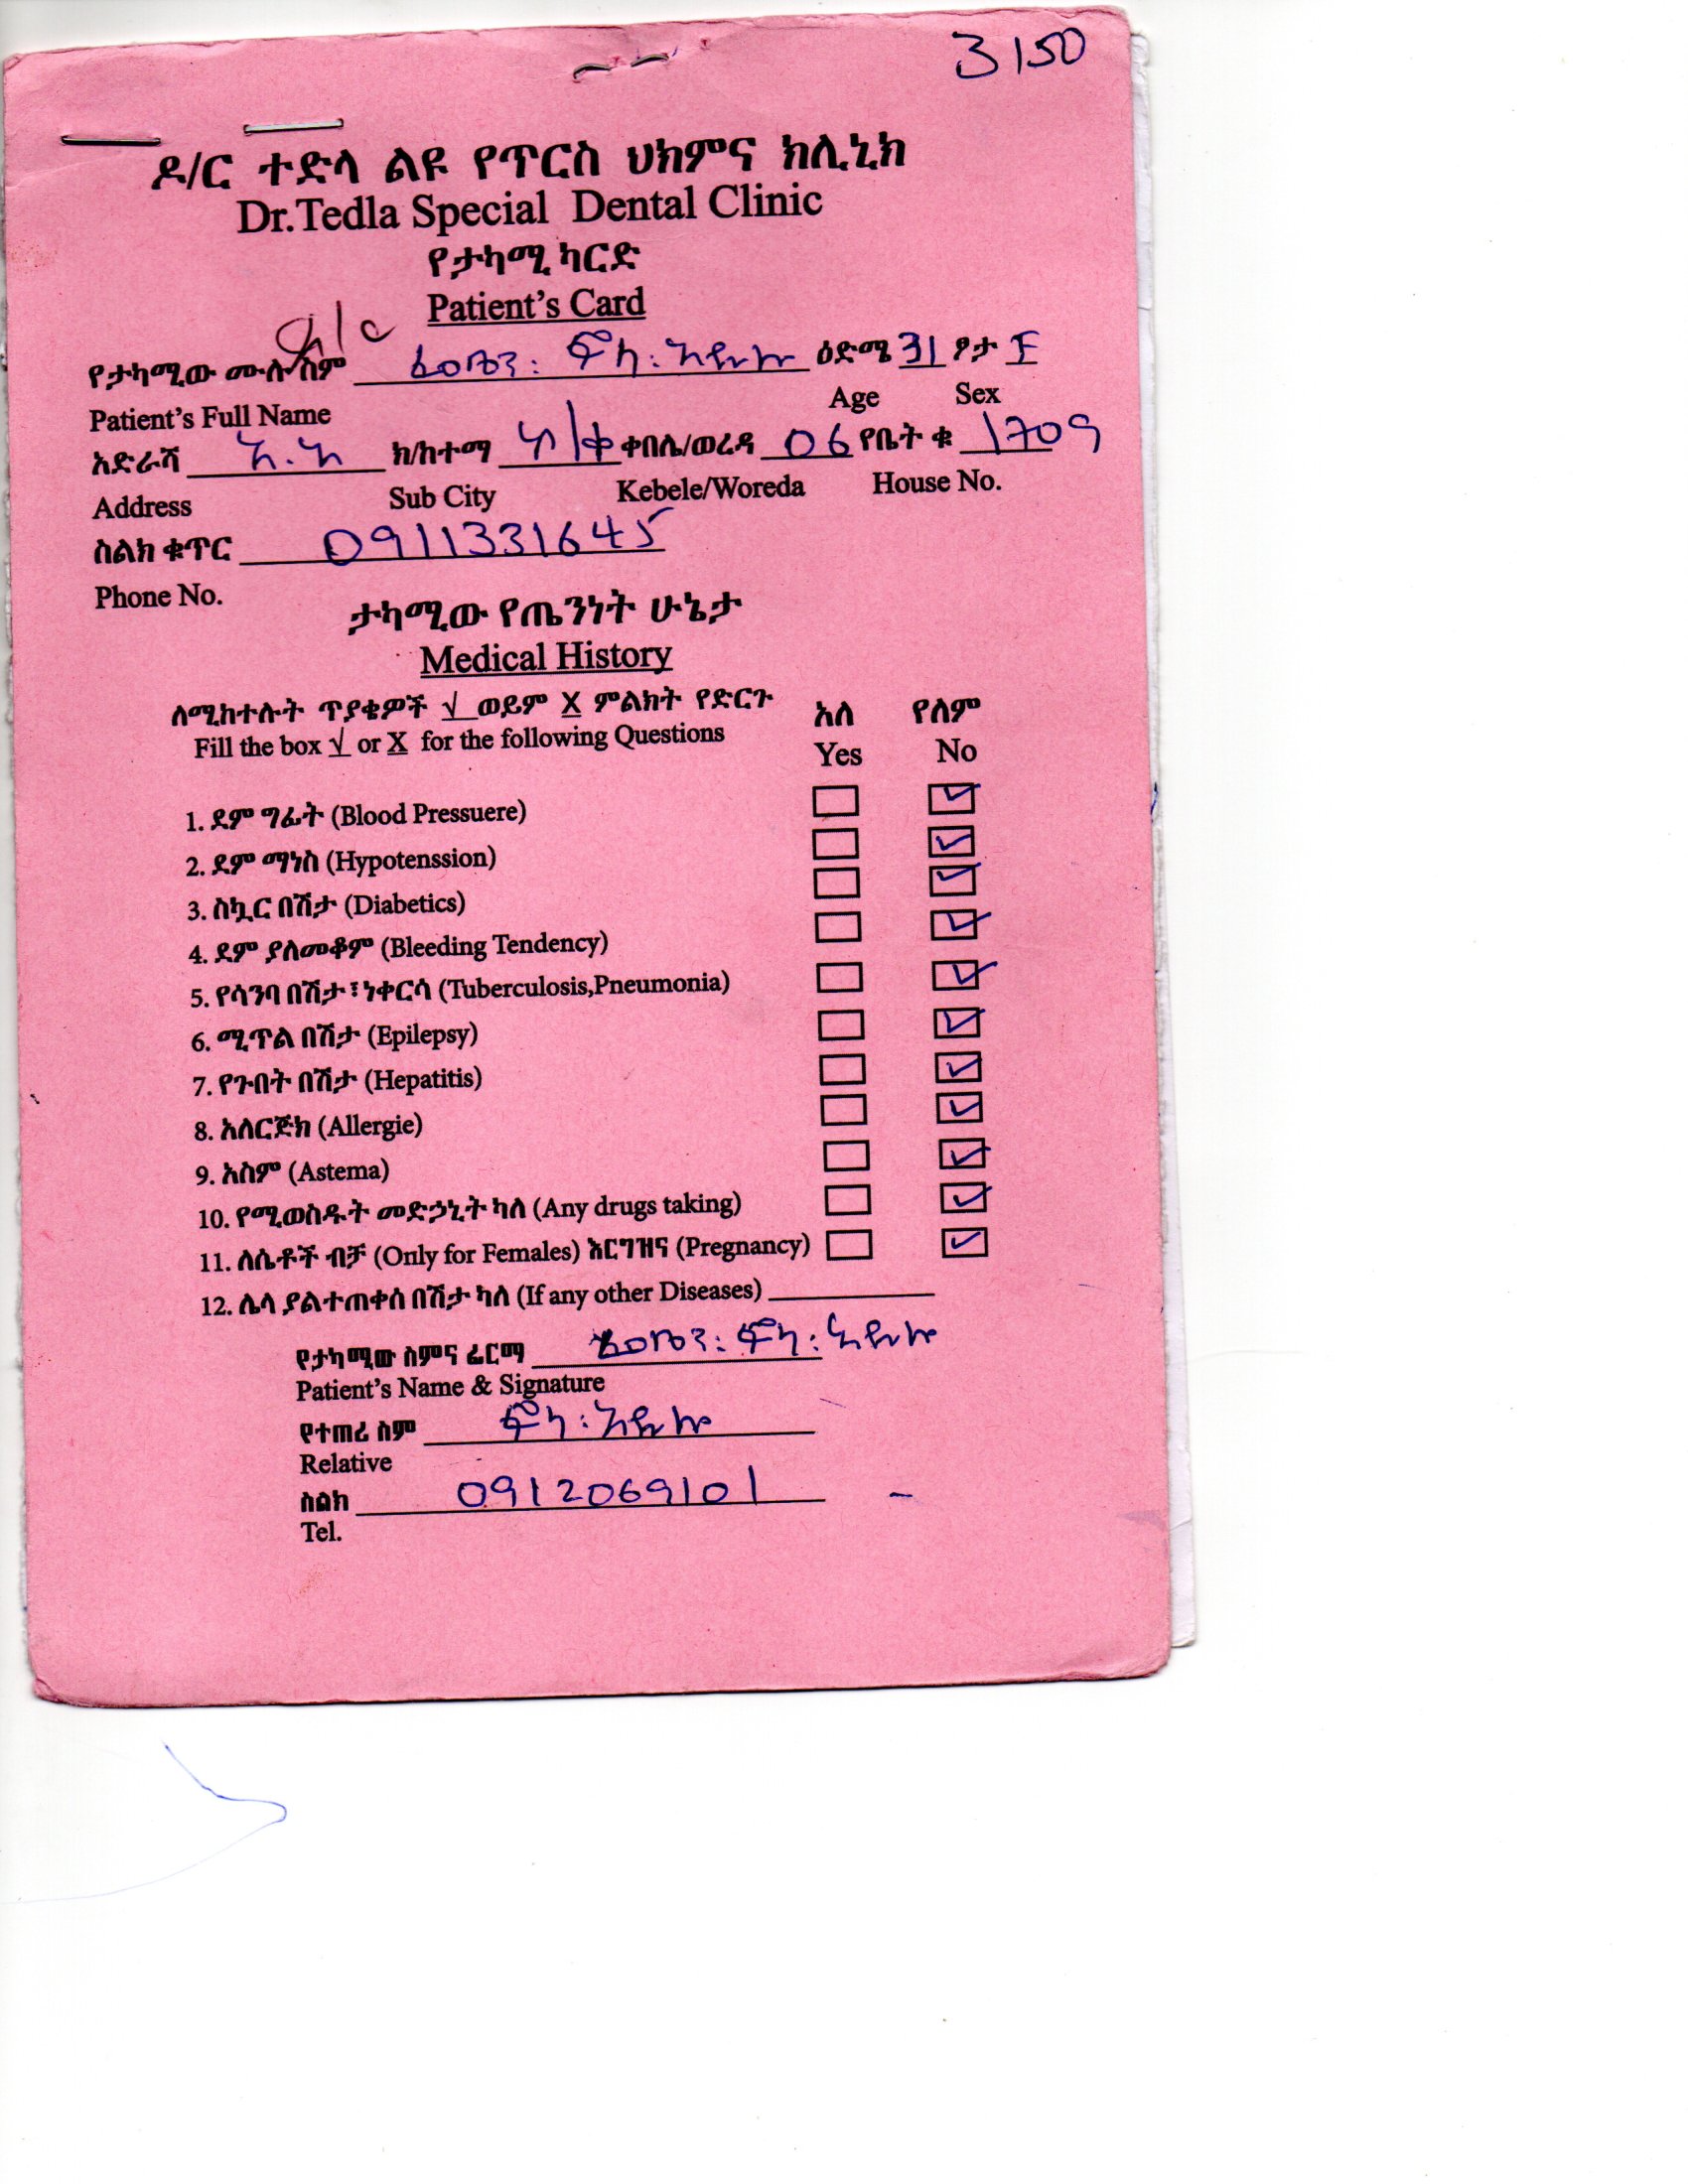 3150
ዶ/ር ተድላ ልዩ የጥርስ ህክምና ክሊኒክ
Dr.Tedla Special Dental Clinic
የታካሚ ካርድ
Patient's Card
የታካሚው ሙሉ ስም ዕድሜ 31 ፆታ F
Patient's Full Name Age Sex
አድራሻ አ.አ ክ/ከተማ ቀበሌ/ወረዳ 06 የቤት ቁ 1709
Address Sub City Kebele/Woreda House No.
ስልክ ቁጥር 0911331645
Phone No.
ታካሚው የጤንነት ሁኔታ
Medical History
ለሚከተሉት ጥያቄዎች √ ወይም X ምልክት የድርጉ አለ የለም
Fill the box √ or X for the following Questions Yes No
1. ደም ግፊት (Blood Pressuere) ✓
2. ደም ማነስ (Hypotenssion) ✓
3. ስኳር በሽታ (Diabetics) ✓
4. ደም ያለመቆም (Bleeding Tendency) ✓
5. የሳንባ በሽታ፣ነቀርሳ (Tuberculosis,Pneumonia) ✓
6. ሚጥል በሽታ (Epilepsy) ✓
7. የጉበት በሽታ (Hepatitis) ✓
8. አለርጅክ (Allergie) ✓
9. አስም (Astema) ✓
10. የሚወስዱት መድኃኒት ካለ (Any drugs taking) ✓
11. ለሴቶች ብቻ (Only for Females) እርግዝና (Pregnancy) ✓
12. ሌላ ያልተጠቀሰ በሽታ ካለ (If any other Diseases)
የታካሚው ስምና ፊርማ
Patient's Name & Signature
የተጠሪ ስም
Relative
ስልክ 0912069101
Tel.